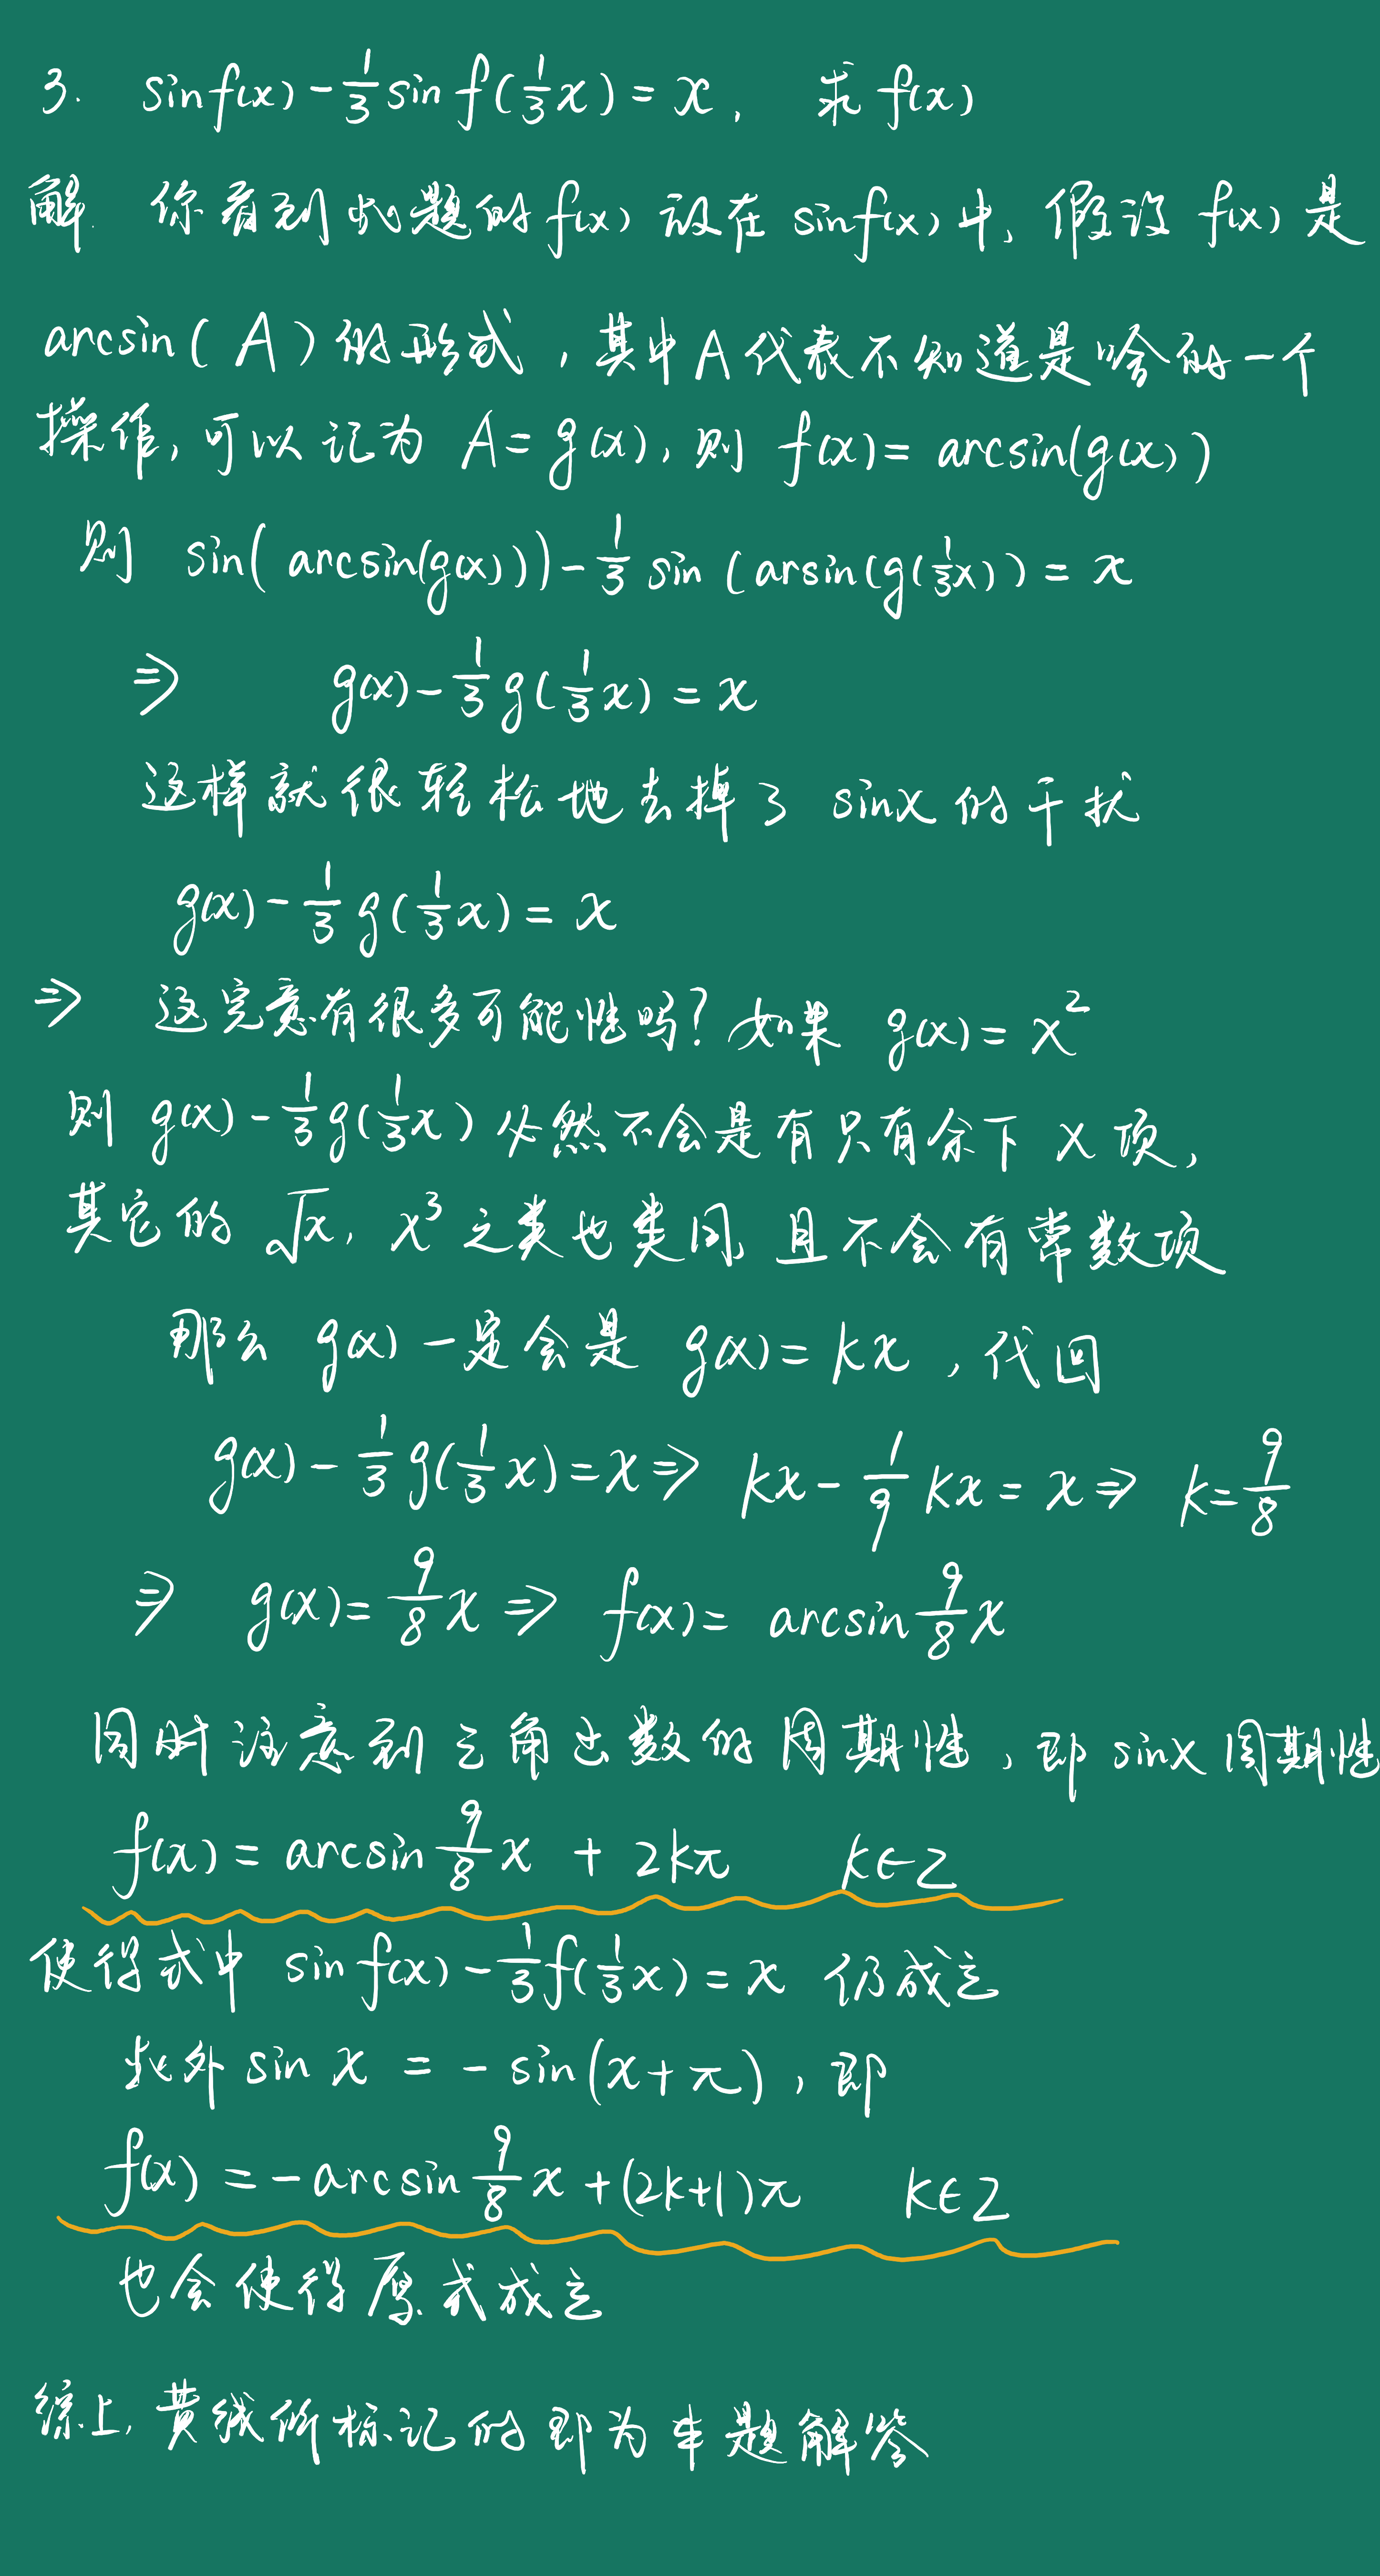 3. sinf(x) - 1/3 sin f(1/3 x) = x, 求 f(x)
解. 你看到此题的 f(x) 放在 sinf(x) 中, 假设 f(x) 是
arcsin(A) 的形式, 其中 A 代表不知道是啥的一个
操作, 可以记为 A = g(x), 则 f(x) = arcsin(g(x))
则 sin(arcsin(g(x))) - 1/3 sin(arsin(g(1/3 x)) = x
⇒ g(x) - 1/3 g(1/3 x) = x
这样就很轻松地去掉了 sinx 的干扰
g(x) - 1/3 g(1/3 x) = x
⇒ 这完意有很多可能性吗? 如果 g(x) = x²
则 g(x) - 1/3 g(1/3 x) 必然不会是有只有余下 x 项,
其它的 √x, x³ 之类也类同, 且不会有常数项
那么 g(x) 一定会是 g(x) = kx, 代回
g(x) - 1/3 g(1/3 x) = x ⇒ kx - 1/9 kx = x ⇒ k = 9/8
⇒ g(x) = 9/8 x ⇒ f(x) = arcsin 9/8 x
同时注意到三角函数的周期性, 即 sinx 周期性
f(x) = arcsin 9/8 x + 2kπ k∈Z
使得式中 sin f(x) - 1/3 f(1/3 x) = x 仍成立
此外 sin x = - sin(x+π), 即
f(x) = - arcsin 9/8 x + (2k+1)π k∈Z
也会使得原式成立
综上, 黄线所标记的即为本题解答